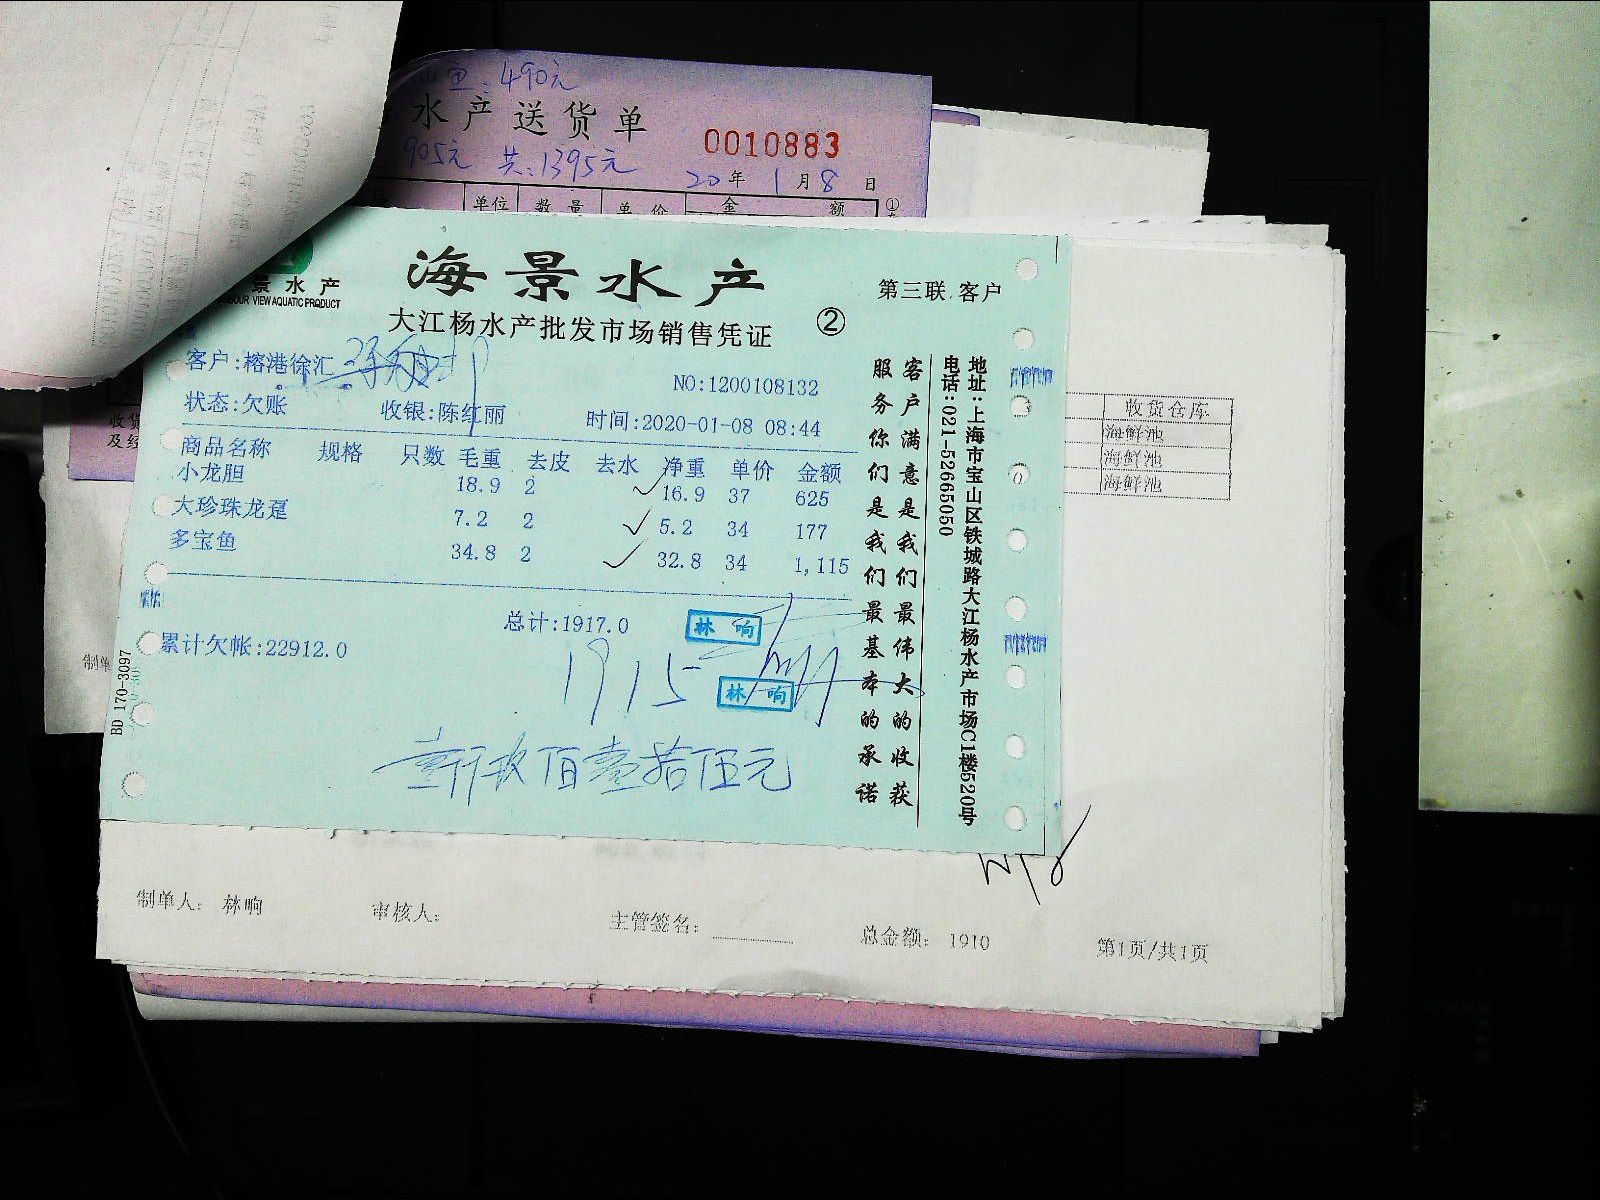 490元
水产送货单
0010883
905元 共:1395元
20年1月8日
单位 数量 单价 金额 ①
景水产
VIEW AQUATIC PRODUCT
海景水产
第三联 客户
大江杨水产批发市场销售凭证 ②
客户:榕港徐汇
NO:1200108132
状态:欠账 收银:陈红丽 时间:2020-01-08 08:44
商品名称 规格 只数 毛重 去皮 去水 净重 单价 金额
小龙胆 18.9 2 16.9 37 625
大珍珠龙趸 7.2 2 5.2 34 177
多宝鱼 34.8 2 32.8 34 1,115
总计:1917.0
林响
累计欠帐:22912.0
1915
林响
壹仟玖佰壹拾伍元
BD 170-3097
客户满意是我们最伟大的收获
服务你们是我们最基本的承诺
地址:上海市宝山区铁城路大江杨水产市场C1楼520号
电话:021-52665050
收货仓库
海鲜池
海鲜池
海鲜池
收货
及经
制单
制单人: 林响 审核人: 主管签名: 总金额: 1910 第1页/共1页